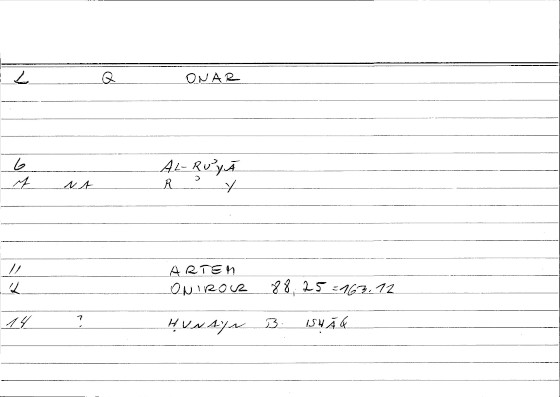 L Q ONAR
6 AL-RUʾYĀ
M NA R ʾ Y
11 ARTEM
L ONIROCR 88,25=163.12
14 ? ḤUNAYN B. ISḤĀQ